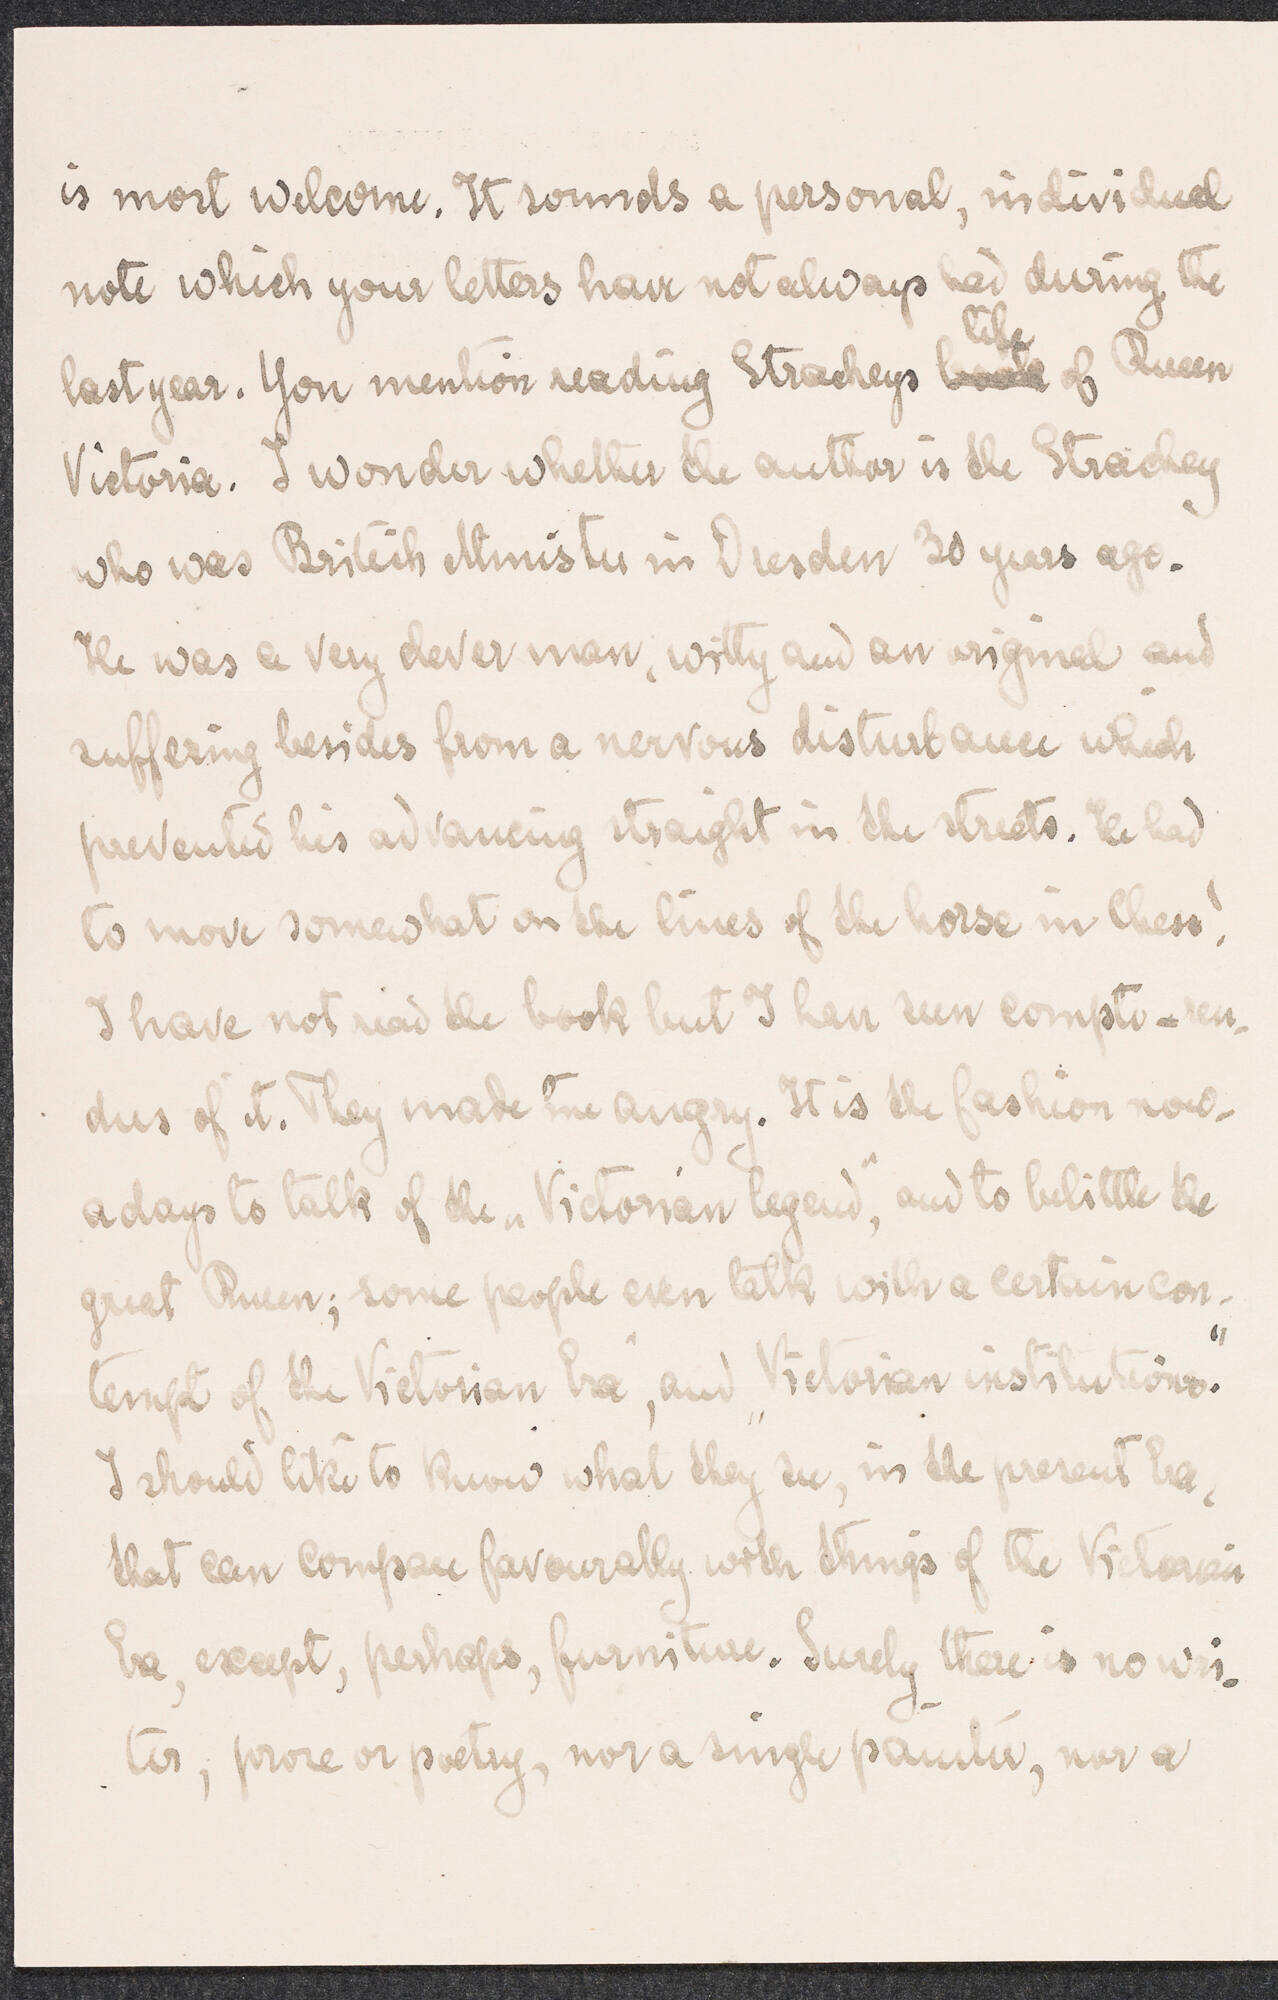 is most welcome. It sounds a personal, individual
note which your letters have not always had during the
last year. You mention reading Stracheys life of Queen
Victoria. I wonder whether the author is the Strachey
who was British Minister in Dresden 30 years ago.
He was a very clever man, witty and an original and
suffering besides from a nervous disturbance which
prevented his advancing straight in the streets. He had
to move somewhat on the lines of the horse in Chess!
I have not read the book but I have seen compte-ren-
dus of it. They made me angry. It is the fashion now-
adays to talk of the „Victorian legend", and to belittle the
great Queen; some people even talk with a certain con-
tempt of the Victorian Era", and „Victorian institutions."
I should like to know what they see, in the present Era,
that can compare favourably with things of the Victorian
Era, except, perhaps, furniture. Surely there is no wri-
ter, prose or poetry, nor a single painter, nor a